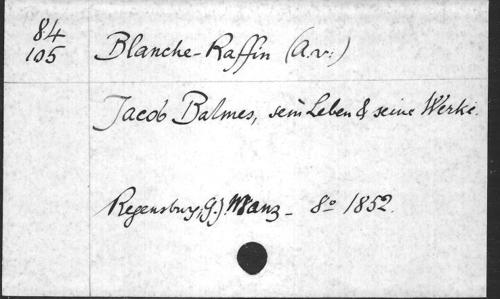 84
105
Blanche-Raffin (A.v.)
Jacob Balmes, sein Leben & seine Werke.
Regensburg, G.J. Manz - 8º 1852.